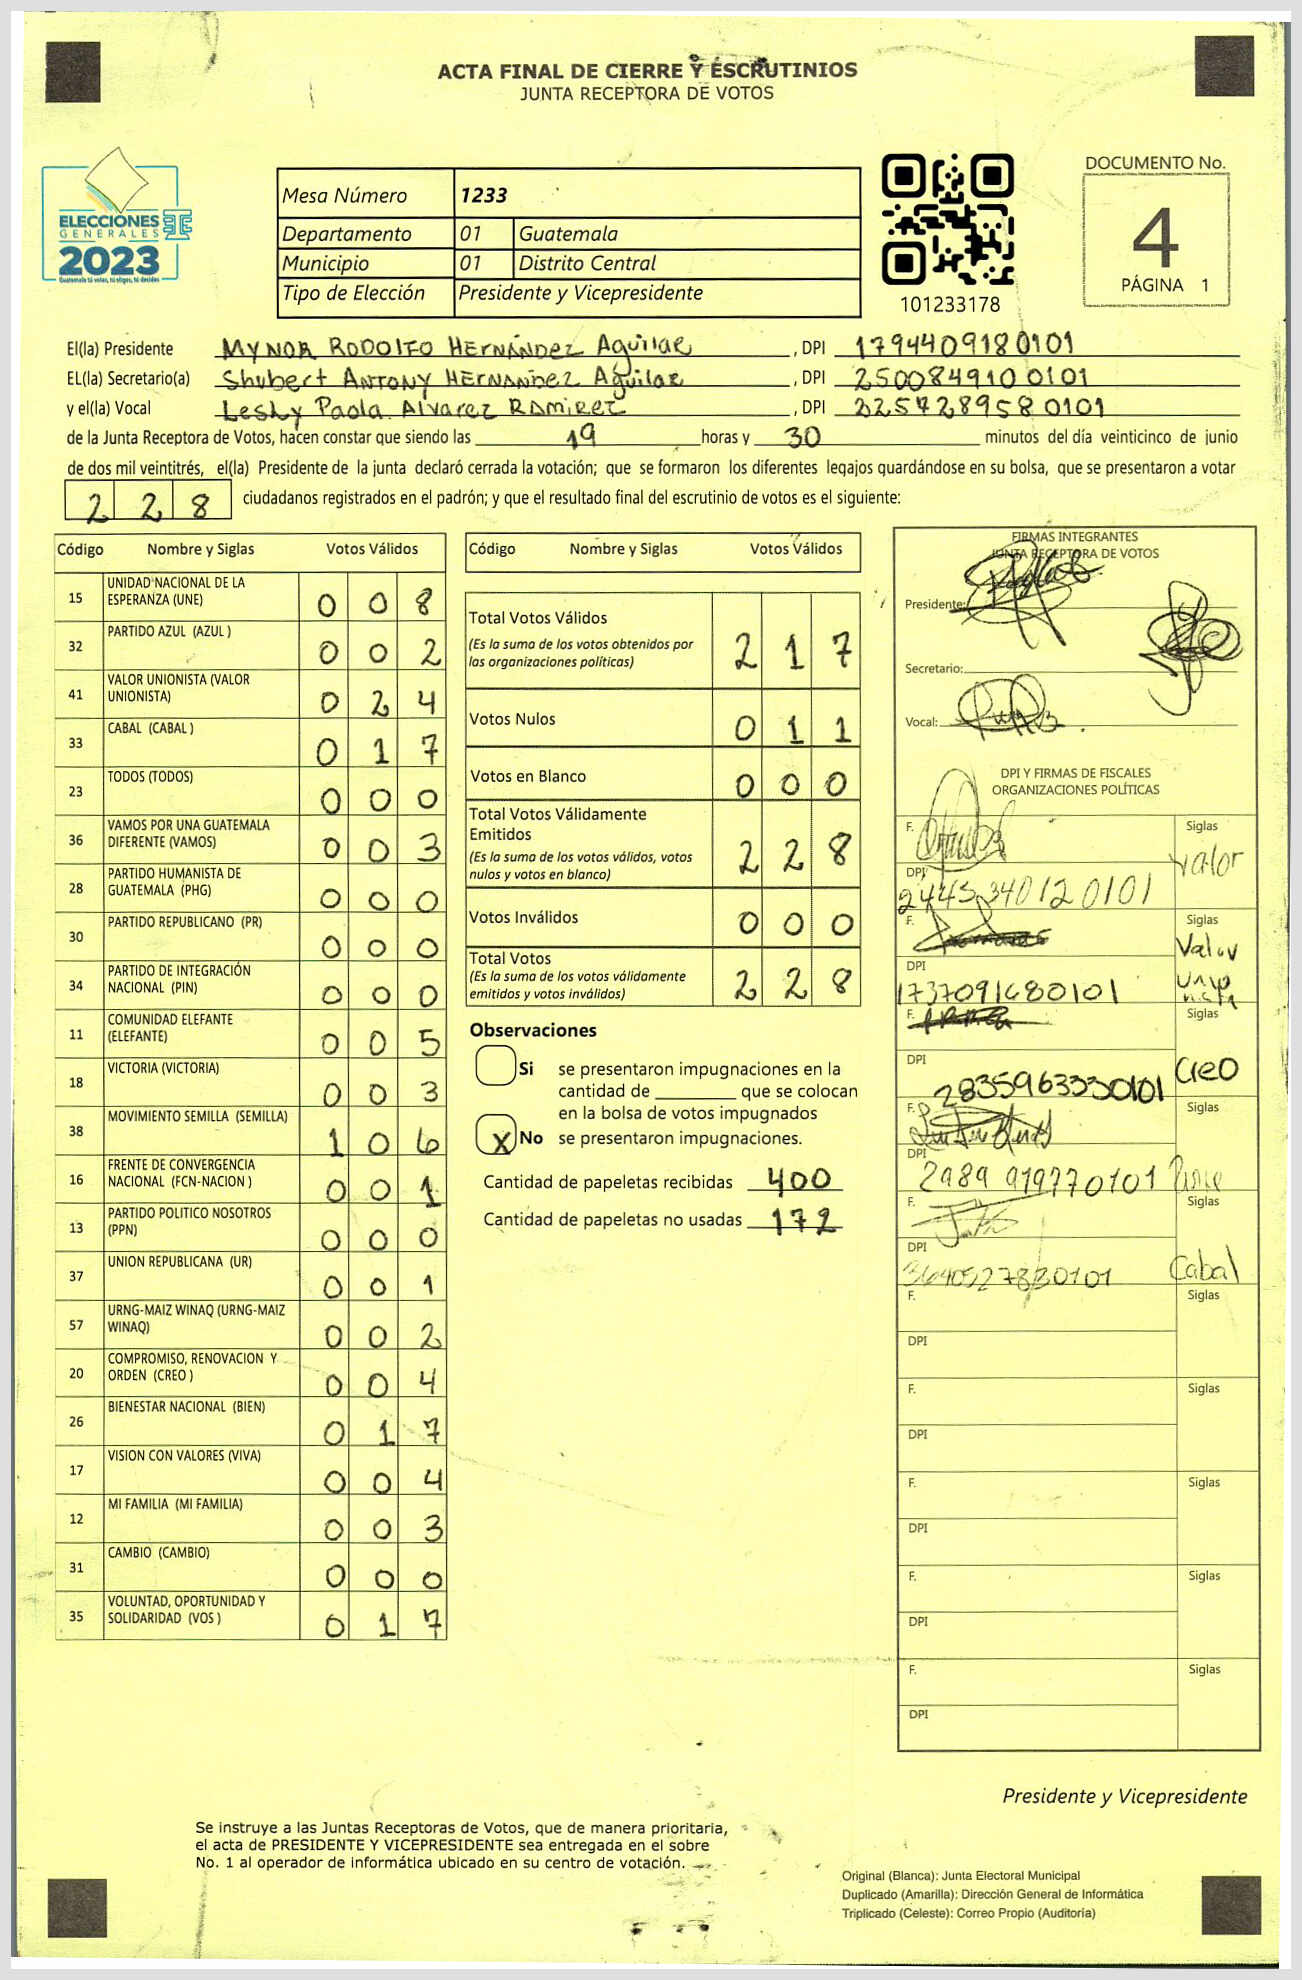 ACTA FINAL DE CIERRE Y ESCRUTINIOS
JUNTA RECEPTORA DE VOTOS
ELECCIONES
GENERALES
2023
Guatemala tú votas, tú eliges, tú decides
Mesa Número 1233
Departamento 01 Guatemala
Municipio 01 Distrito Central
Tipo de Elección Presidente y Vicepresidente
101233178
DOCUMENTO No.
4
PÁGINA 1
El(la) Presidente MYNOR RODOLFO HERNÁNDEZ AguilAR , DPI 1794409180101
EL(la) Secretario(a) Shubert ANTONY HERNANDEZ AguilAR , DPI 2500849100101
y el(la) Vocal Leshy Paola Alvarez RAMIREZ , DPI 2257289580101
de la Junta Receptora de Votos, hacen constar que siendo las 19 horas y 30 minutos del día veinticinco de junio
de dos mil veintitrés, el(la) Presidente de la junta declaró cerrada la votación; que se formaron los diferentes legajos guardándose en su bolsa, que se presentaron a votar
2 2 8 ciudadanos registrados en el padrón; y que el resultado final del escrutinio de votos es el siguiente:
Código Nombre y Siglas Votos Válidos
15 UNIDAD NACIONAL DE LA
ESPERANZA (UNE) 0 0 8
32 PARTIDO AZUL (AZUL ) 0 0 2
41 VALOR UNIONISTA (VALOR
UNIONISTA) 0 2 4
33 CABAL (CABAL ) 0 1 7
23 TODOS (TODOS) 0 0 0
36 VAMOS POR UNA GUATEMALA
DIFERENTE (VAMOS) 0 0 3
28 PARTIDO HUMANISTA DE
GUATEMALA (PHG) 0 0 0
30 PARTIDO REPUBLICANO (PR) 0 0 0
34 PARTIDO DE INTEGRACIÓN
NACIONAL (PIN) 0 0 0
11 COMUNIDAD ELEFANTE
(ELEFANTE) 0 0 5
18 VICTORIA (VICTORIA) 0 0 3
38 MOVIMIENTO SEMILLA (SEMILLA) 1 0 6
16 FRENTE DE CONVERGENCIA
NACIONAL (FCN-NACION ) 0 0 1
13 PARTIDO POLITICO NOSOTROS
(PPN) 0 0 0
37 UNION REPUBLICANA (UR) 0 0 1
57 URNG-MAIZ WINAQ (URNG-MAIZ
WINAQ) 0 0 2
20 COMPROMISO, RENOVACION Y
ORDEN (CREO ) 0 0 4
26 BIENESTAR NACIONAL (BIEN) 0 1 7
17 VISION CON VALORES (VIVA) 0 0 4
12 MI FAMILIA (MI FAMILIA) 0 0 3
31 CAMBIO (CAMBIO) 0 0 0
35 VOLUNTAD, OPORTUNIDAD Y
SOLIDARIDAD (VOS ) 0 1 7
Código Nombre y Siglas Votos Válidos
Total Votos Válidos
(Es la suma de los votos obtenidos por
las organizaciones políticas) 2 1 7
Votos Nulos 0 1 1
Votos en Blanco 0 0 0
Total Votos Válidamente
Emitidos
(Es la suma de los votos válidos, votos
nulos y votos en blanco) 2 2 8
Votos Inválidos 0 0 0
Total Votos
(Es la suma de los votos válidamente
emitidos y votos inválidos) 2 2 8
Observaciones
Si se presentaron impugnaciones en la
cantidad de ________ que se colocan
en la bolsa de votos impugnados
X No se presentaron impugnaciones.
Cantidad de papeletas recibidas 400
Cantidad de papeletas no usadas 172
FIRMAS INTEGRANTES
JUNTA RECEPTORA DE VOTOS
Presidente:
Secretario:
Vocal:
DPI Y FIRMAS DE FISCALES
ORGANIZACIONES POLÍTICAS
F. Siglas
valor
DPI
2445340120101
F. Siglas
Valor
DPI
1737091680101
F. Siglas
DPI
2835963330101 Creo
F. Siglas
DPI
2989 919770101
F. Siglas
DPI
Cabal
F. Siglas
DPI
F. Siglas
DPI
F. Siglas
DPI
F. Siglas
DPI
F. Siglas
DPI
Presidente y Vicepresidente
Se instruye a las Juntas Receptoras de Votos, que de manera prioritaria,
el acta de PRESIDENTE Y VICEPRESIDENTE sea entregada en el sobre
No. 1 al operador de informática ubicado en su centro de votación.
Original (Blanca): Junta Electoral Municipal
Duplicado (Amarilla): Dirección General de Informática
Triplicado (Celeste): Correo Propio (Auditoría)